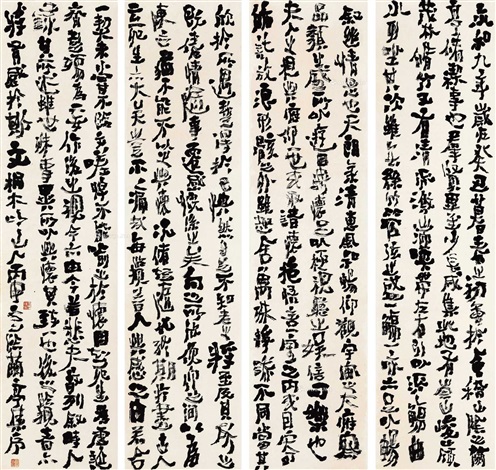 永和九年歲在癸丑暮春之初會於會稽山陰之蘭
亭脩禊事也群賢畢至少長咸集此地有崇山峻領
茂林脩竹又有清流激湍映帶左右引以為流觴曲
水列坐其次雖無絲竹管弦之盛一觴一詠亦足以暢
叙幽情是日也天朗氣清惠風和暢仰觀宇宙之大俯察
品類之盛所以遊目騁懷足以極視聽之娛信可樂也
夫人之相與俯仰一世或取諸懷抱悟言一室之內或因寄所
託放浪形骸之外雖趣舍萬殊靜躁不同當其
欣於所遇暫得於己快然自足不知老之將至及其所之
既倦情隨事遷感慨係之矣向之所欣俛仰之間以為
陳迹猶不能不以之興懷況脩短隨化終期於盡古人
云死生亦大矣豈不痛哉每攬昔人興感之由若合
一契未嘗不臨文嗟悼不能喻之於懷固知死生為虛誕
齊彭殤為妄作後之視今亦由今之視昔悲夫故列叙時人
錄其所述雖世殊事異所以興懷其致一也後之攬者亦
將有感於斯文 山人丙申冬 蘭亭集序